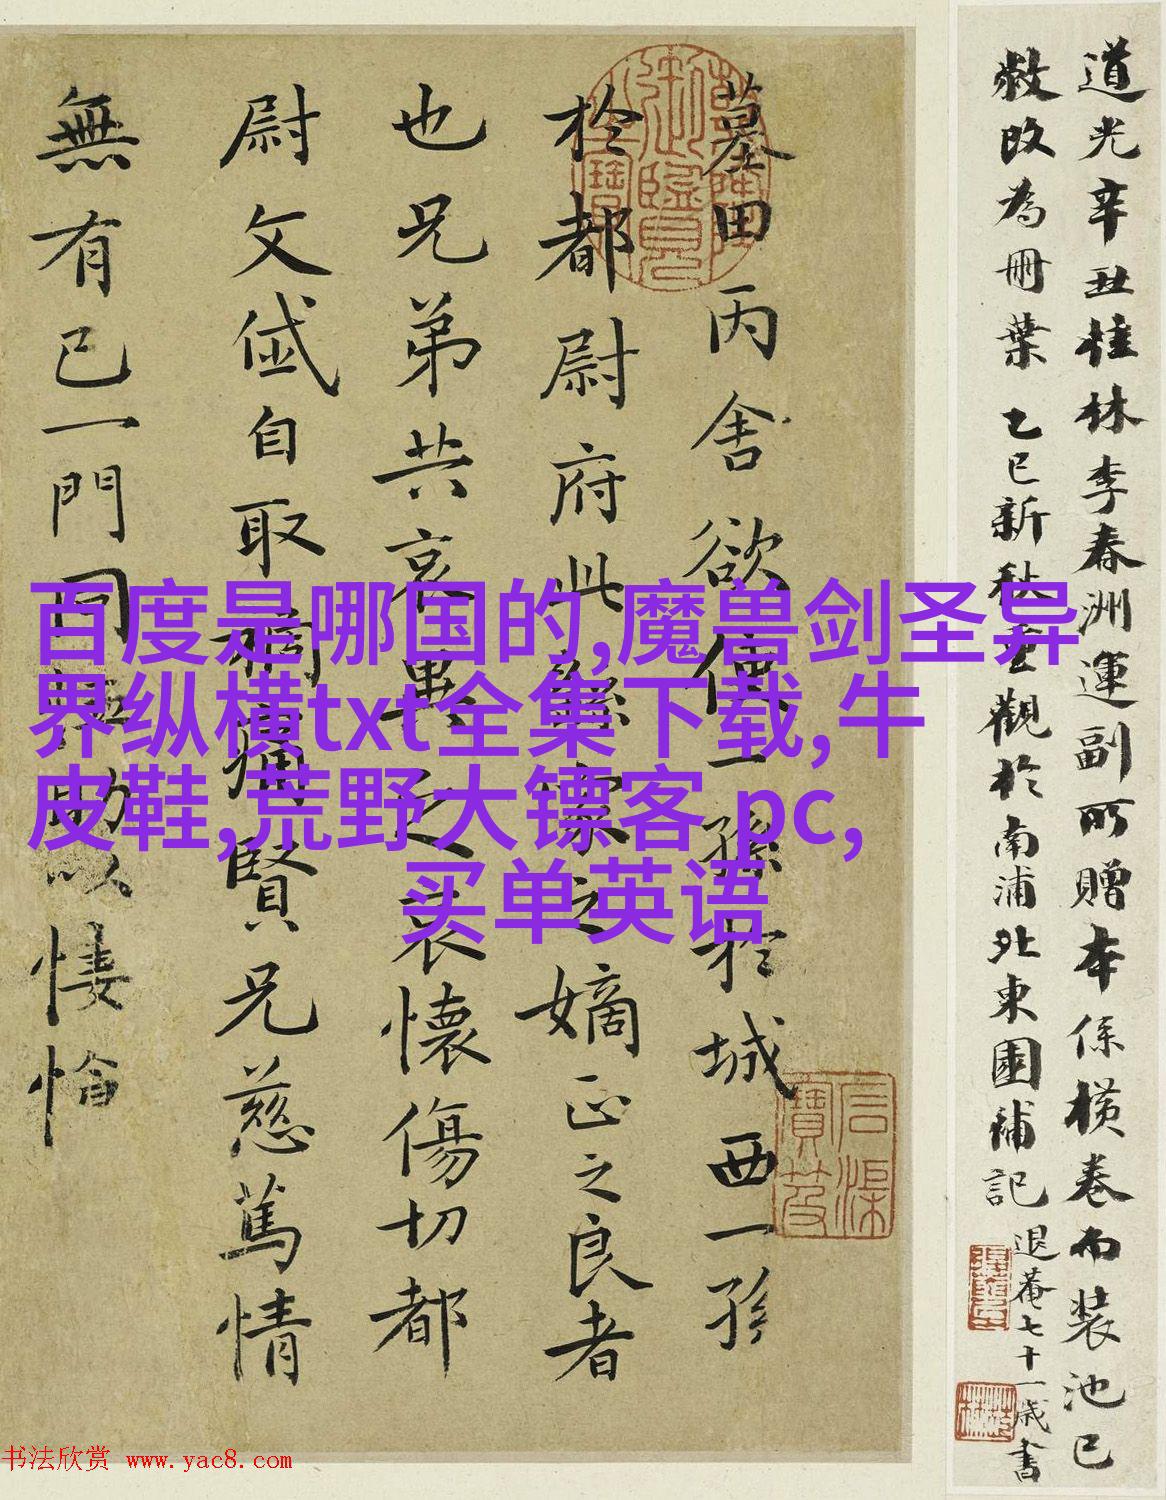 道光辛丑桂林李春洲運副所贈本係橫卷而裝池已
敝改為冊葉 乙巳新秋重觀於南浦北東園補記 退菴七十一歲書
墓田丙舍欲使一孫於城西一孫
於都尉府此繇家之嫡正之良者
也兄弟共哀異之哀懷傷切都
尉文岱自取禍痛賢兄慈篤情
無有已一門同恤助以悽愴
乾隆御覽之寶
石渠寶笈
百度是哪国的,魔兽剑圣异
界纵横txt全集下载,牛
皮鞋,荒野大镖客 pc,
买单英语
书法欣赏 www.yac8.com